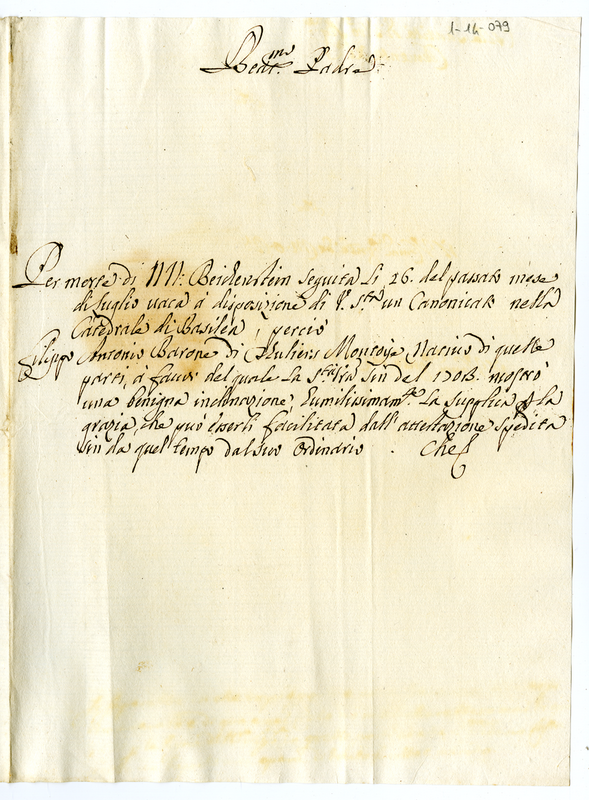 1-14-079
Beat.mo Padre
Per morte di NN: Beichenstein seguita li 26. del passato mese
di luglio vaca à disposizione di V. S.tà un Canonicato nella
Catedrale di Basilea, perciò
Filippo Antonio Barone di Montoije Nativo di quelle
parti, à favor del quale la S.tà Vra sin del 1708. mostrò
una benigna inclinazione, humilissimam.te La supplica p la
grazia, che può esserli facilitata dall'attestazione spedita
sin da quel tempo dal suo Ordinario. Che